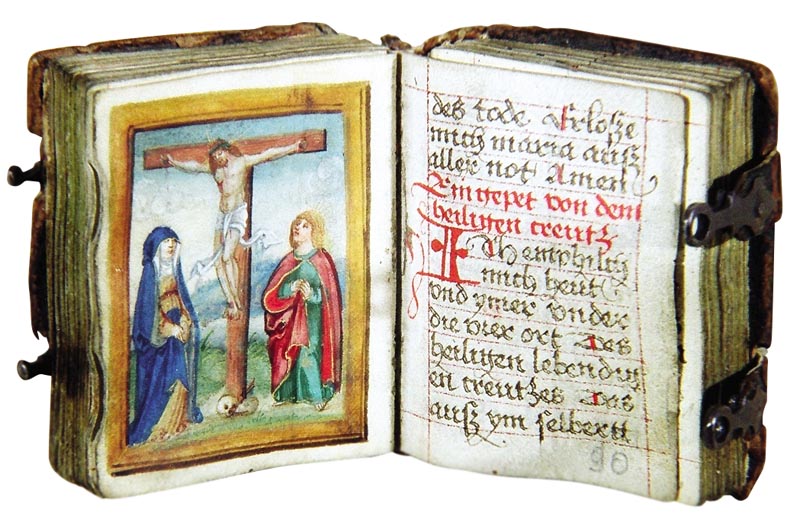 des tode Erlosze
mich maria ausz
aller not Amen
Ein gepet von dem
heiligen creutz
Ich emphilch
mich heut
vnd ymer vnder
die vier ort des
heiligen lebendig
en creutzes das
ausz ym selber
90